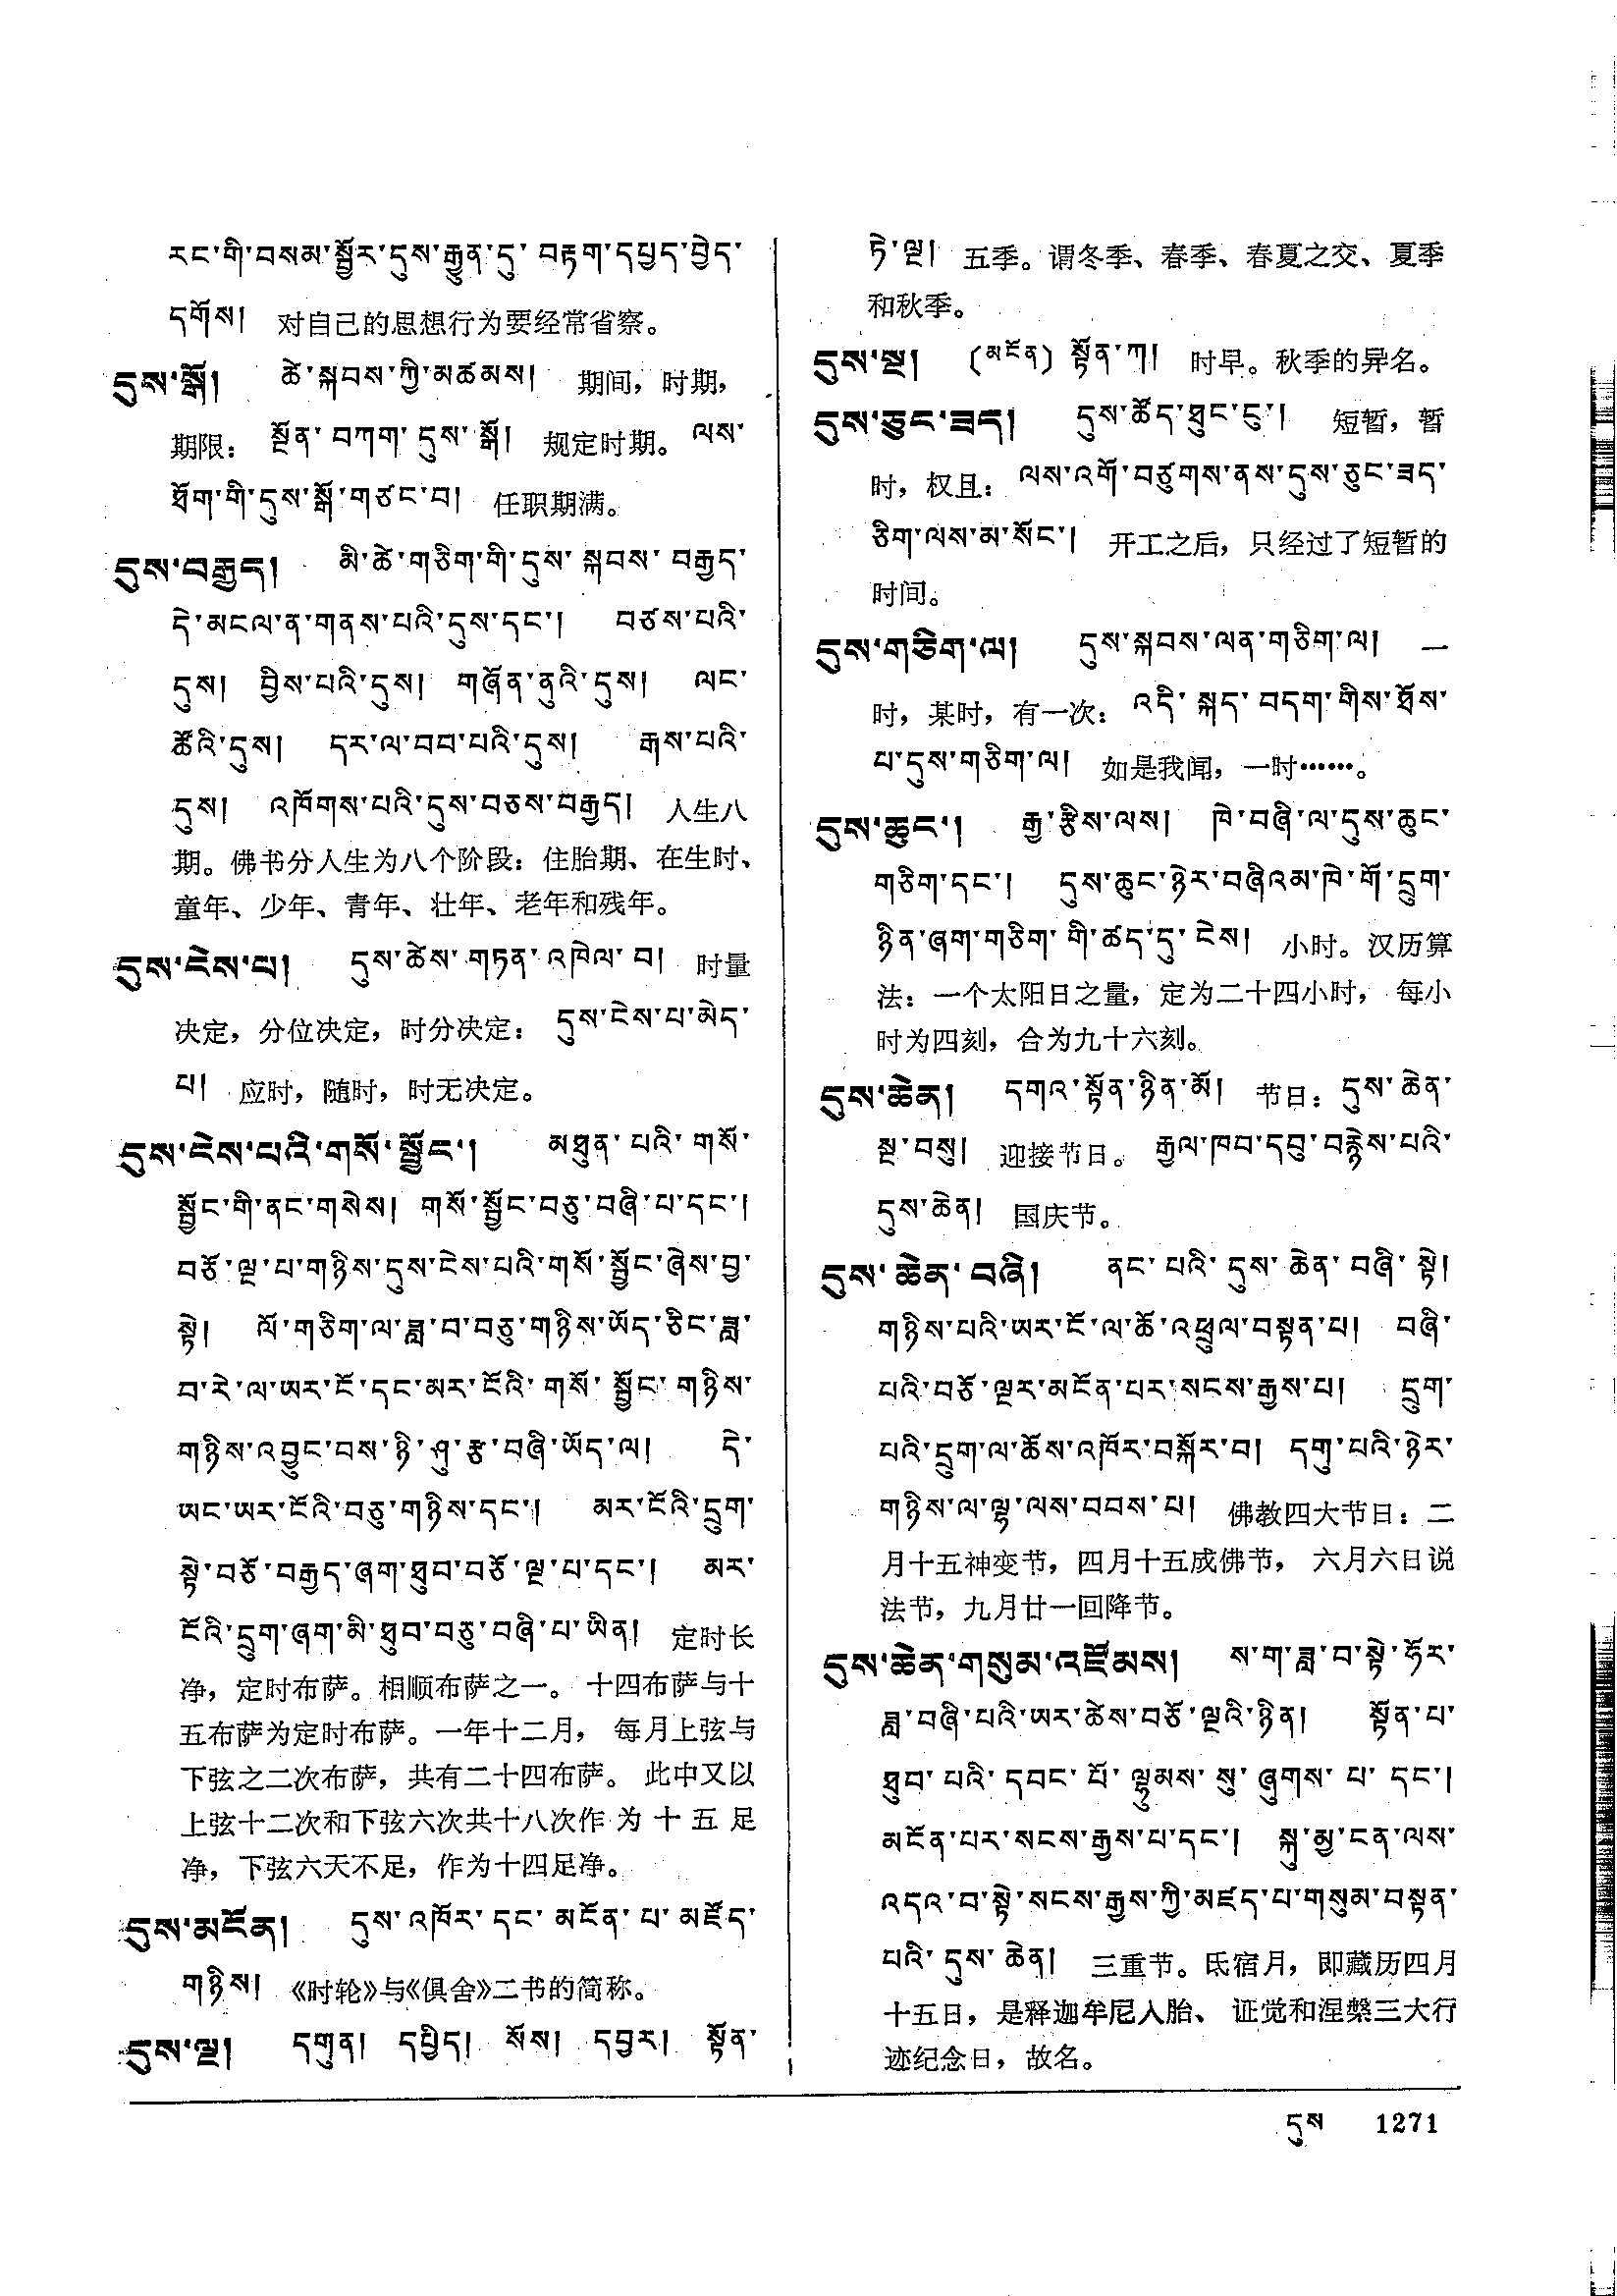 རང་གི་བསམ་སྦྱོར་དུས་རྒྱུན་དུ་བརྟག་དཔྱད་བྱེད་
དགོས། 对自己的思想行为要经常省察。
དུས་སྒོ། ཚེ་སྐབས་ཀྱི་མཚམས། 期间，时期，
期限： སྔོན་བཀག་དུས་སྒོ། 规定时期。 ལས་
ཐོག་གི་དུས་སྒོ་གཙང་བ། 任职期满。
དུས་བརྒྱད། མི་ཚེ་གཅིག་གི་དུས་སྐབས་བརྒྱད་
དེ་མངལ་ན་གནས་པའི་དུས་དང་། བཙས་པའི་
དུས། བྱིས་པའི་དུས། གཞོན་ནུའི་དུས། ལང་
ཚོའི་དུས། དར་ལ་བབ་པའི་དུས། རྒས་པའི་
དུས། འཁོགས་པའི་དུས་བཅས་བརྒྱད། 人生八
期。佛书分人生为八个阶段：住胎期、在生时、
童年、少年、青年、壮年、老年和残年。
དུས་ངེས་པ། དུས་ཚེས་གཏན་འཁེལ་བ། 时量
决定，分位决定，时分决定： དུས་ངེས་པ་མེད་
པ། 应时，随时，时无决定。
དུས་ངེས་པའི་གསོ་སྦྱོང་། མཐུན་པའི་གསོ་
སྦྱོང་གི་ནང་གསེས། གསོ་སྦྱོང་བཅུ་བཞི་པ་དང་།
བཅོ་ལྔ་པ་གཉིས་དུས་ངེས་པའི་གསོ་སྦྱོང་ཞེས་བྱ་
སྟེ། ལོ་གཅིག་ལ་ཟླ་བ་བཅུ་གཉིས་ཡོད་ཅིང་ཟླ་
བ་རེ་ལ་ཡར་ངོ་དང་མར་ངོའི་གསོ་སྦྱོང་གཉིས་
གཉིས་འབྱུང་བས་ཉི་ཤུ་རྩ་བཞི་ཡོད་ལ། དེ་
ཡང་ཡར་ངོའི་བཅུ་གཉིས་དང་། མར་ངོའི་དྲུག་
སྟེ་བཅོ་བརྒྱད་ཞག་ཐུབ་བཅོ་ལྔ་པ་དང་། མར་
ངོའི་དྲུག་ཞག་མི་ཐུབ་བཅུ་བཞི་པ་ཡིན། 定时长
净，定时布萨。相顺布萨之一。 十四布萨与十
五布萨为定时布萨。一年十二月， 每月上弦与
下弦之二次布萨，共有二十四布萨。 此中又以
上弦十二次和下弦六次共十八次作为十五足
净，下弦六天不足，作为十四足净。
དུས་མངོན། དུས་འཁོར་དང་མངོན་པ་མཛོད་
གཉིས། 《时轮》与《俱舍》二书的简称。
དུས་ལྔ། དགུན། དཔྱིད། སོས། དབྱར། སྟོན་
ཏེ་ལྔ། 五季。谓冬季、春季、春夏之交、夏季
和秋季。
དུས་སྔ། (མངོན) སྟོན་ཀ། 时早。秋季的异名。
དུས་ཅུང་ཟད། དུས་ཚོད་ཐུང་ངུ་། 短暂，暂
时，权且： ལས་འགོ་བཙུགས་ནས་དུས་ཅུང་ཟད་
ཅིག་ལས་མ་སོང་། 开工之后，只经过了短暂的
时间。
དུས་གཅིག་ལ། དུས་སྐབས་ལན་གཅིག་ལ། 一
时，某时，有一次： འདི་སྐད་བདག་གིས་ཐོས་
པ་དུས་གཅིག་ལ། 如是我闻，一时……。
དུས་ཆུང་། རྒྱ་རྩིས་ལས། ཁེ་བཞི་ལ་དུས་ཆུང་
གཅིག་དང་། དུས་ཆུང་ཉེར་བཞིའམ་ཁེ་གོ་དྲུག་
ཉིན་ཞག་གཅིག་གི་ཚད་དུ་ངེས། 小时。汉历算
法：一个太阳日之量，定为二十四小时， 每小
时为四刻，合为九十六刻。
དུས་ཆེན། དགའ་སྟོན་ཉིན་མོ། 节日： དུས་ཆེན་
སྔ་བསུ། 迎接节日。 རྒྱལ་ཁབ་དབུ་བརྙེས་པའི་
དུས་ཆེན། 国庆节。
དུས་ཆེན་བཞི། ནང་པའི་དུས་ཆེན་བཞི་སྟེ།
གཉིས་པའི་ཡར་ངོ་ལ་ཆོ་འཕྲུལ་བསྟན་པ། བཞི་
པའི་བཅོ་ལྔར་མངོན་པར་སངས་རྒྱས་པ། དྲུག་
པའི་དྲུག་ལ་ཆོས་འཁོར་བསྐོར་བ། དགུ་པའི་ཉེར་
གཉིས་ལ་ལྷ་ལས་བབས་པ། 佛教四大节日：二
月十五神变节，四月十五成佛节， 六月六日说
法节，九月廿一回降节。
དུས་ཆེན་གསུམ་འཛོམས། ས་ག་ཟླ་བ་སྟེ་ཧོར་
ཟླ་བཞི་པའི་ཡར་ཚེས་བཅོ་ལྔའི་ཉིན། སྟོན་པ་
ཐུབ་པའི་དབང་པོ་ལྷུམས་སུ་ཞུགས་པ་དང་།
མངོན་པར་སངས་རྒྱས་པ་དང་། སྐུ་མྱ་ངན་ལས་
འདའ་བ་སྟེ་སངས་རྒྱས་ཀྱི་མཛད་པ་གསུམ་བསྟན་
པའི་དུས་ཆེན། 三重节。氐宿月，即藏历四月
十五日，是释迦牟尼入胎、 证觉和涅槃三大行
迹纪念日，故名。
དུས 1271